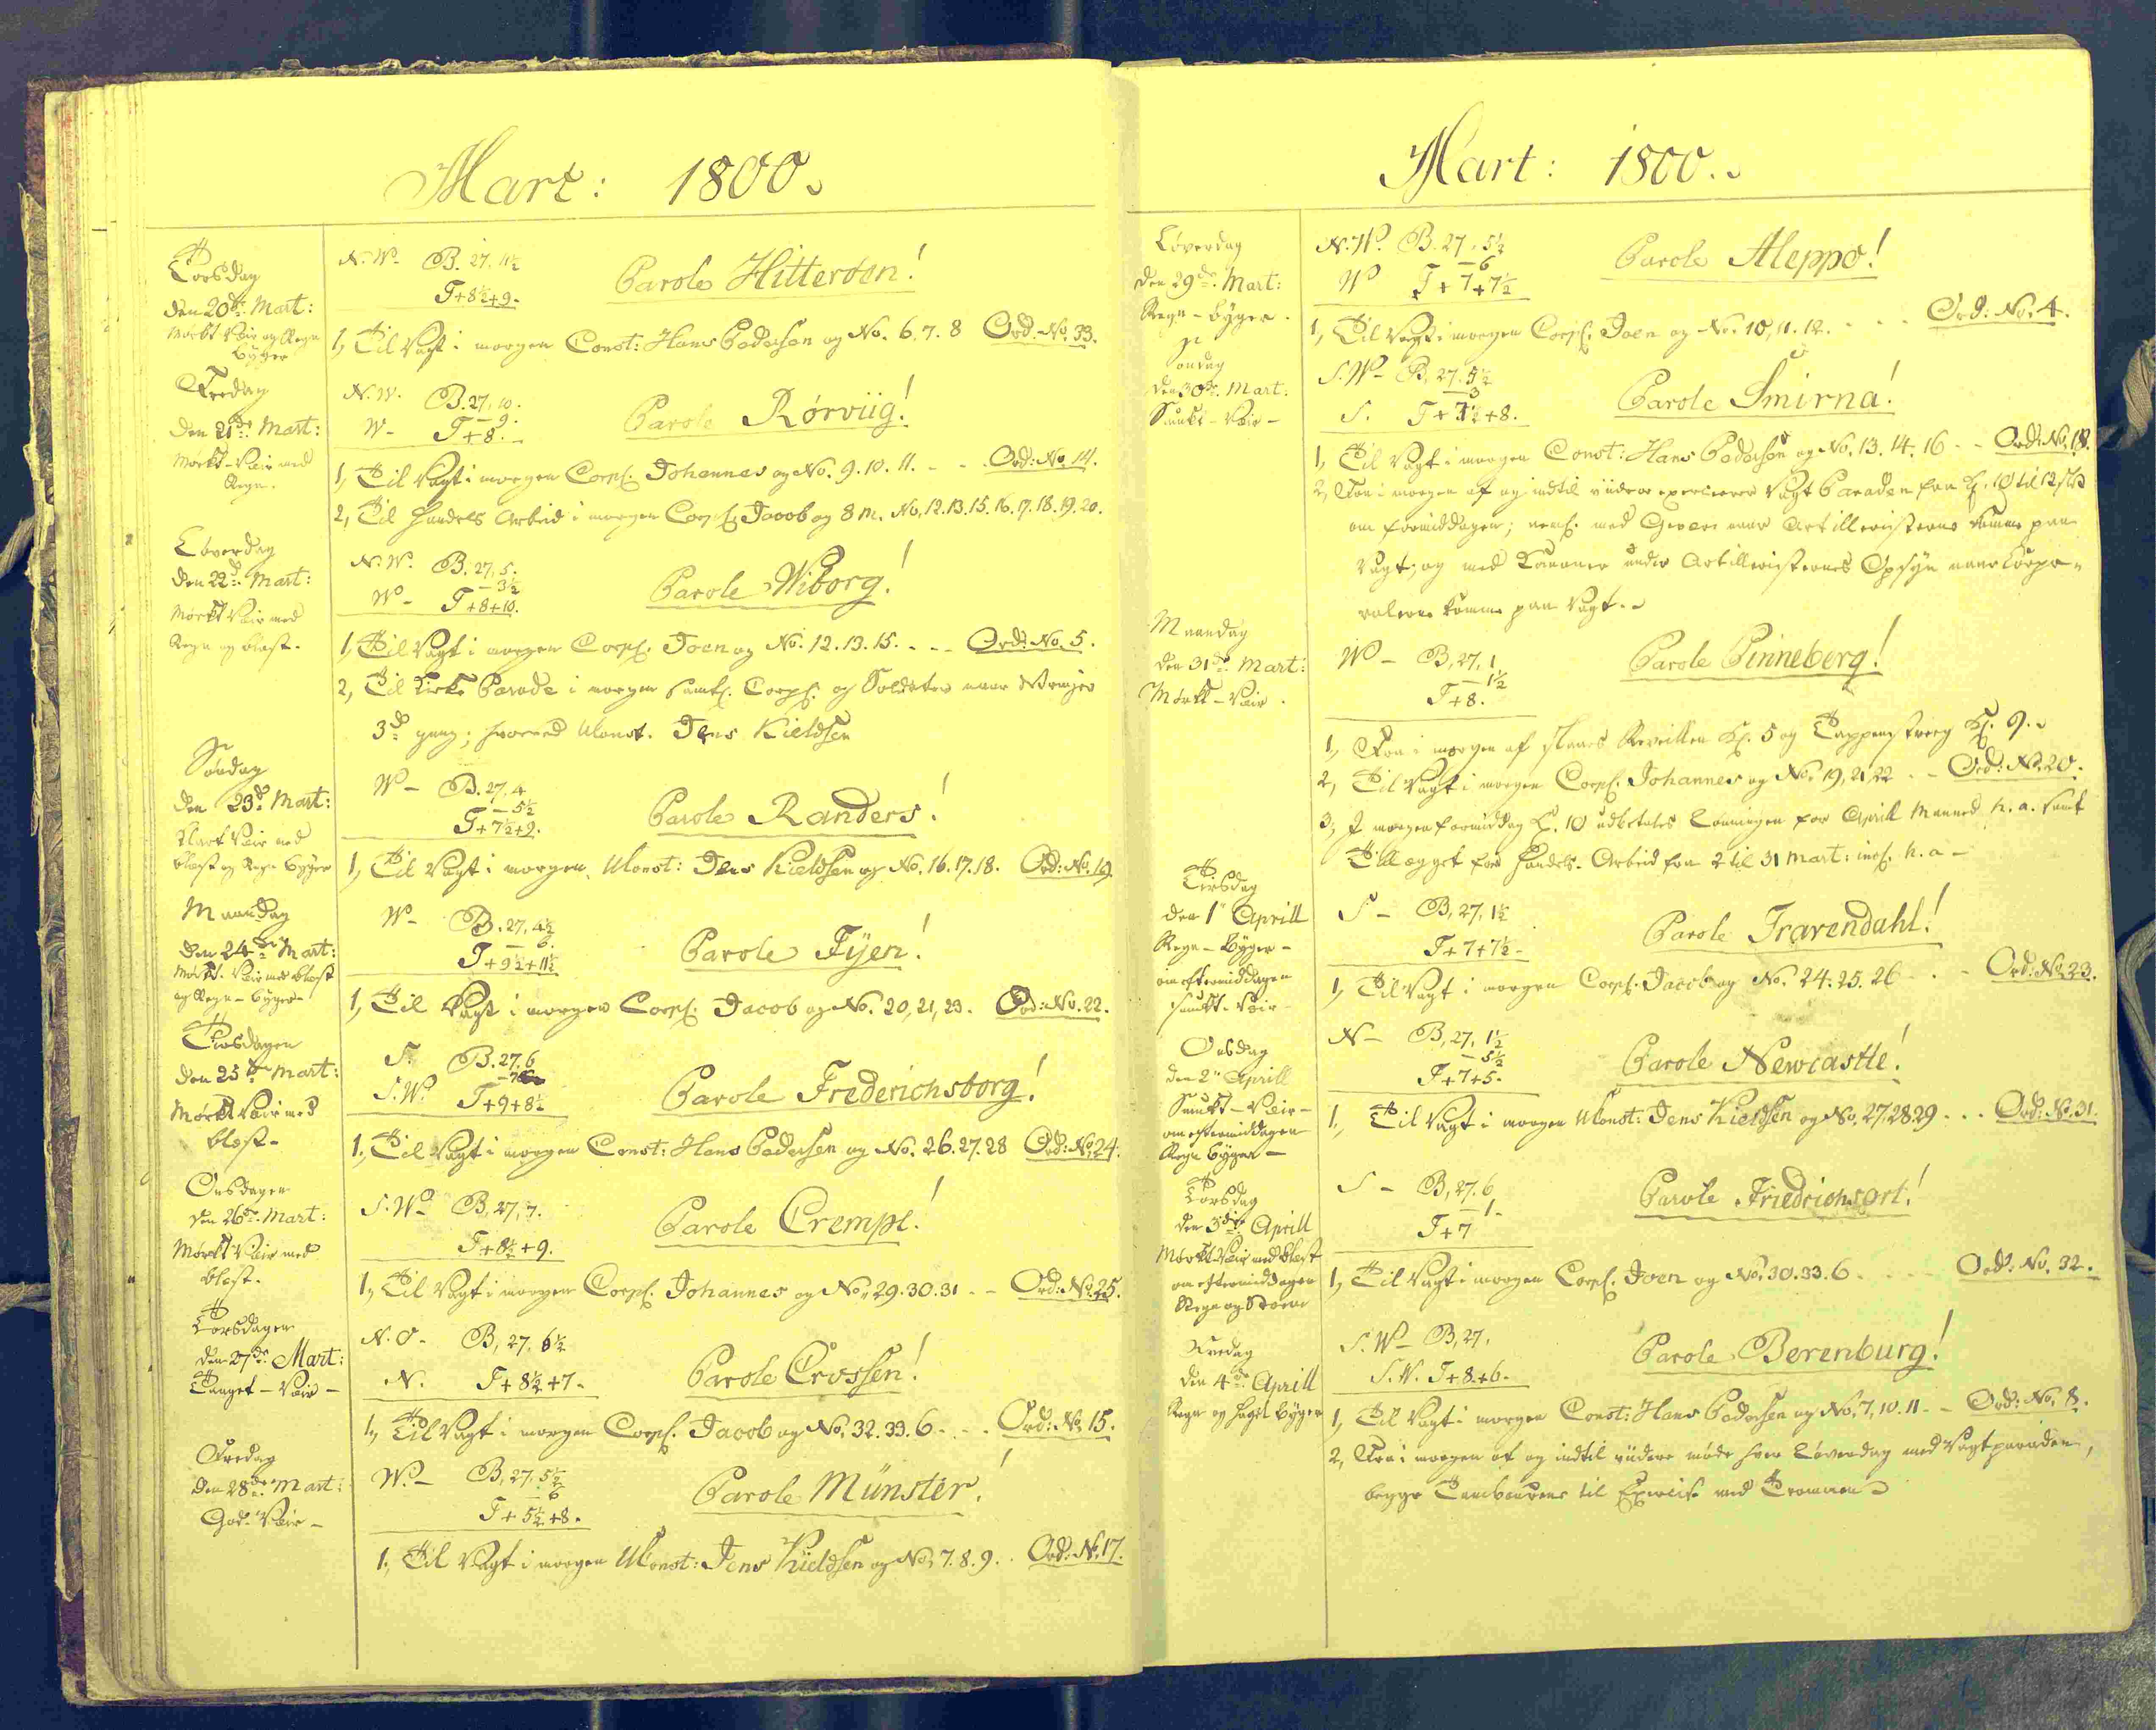 Mart: 1800.
Torsdag
den 20de Mart:
Mørkt Veir og Regn
Byger
N.W. B. 27. 11½
T+8½+9.
Parole Hitterøen!
1, Til Vagt i morgen Const: Hans Pedersen og No. 6. 7. 8 Ord. No. 33.
Fredag
den 21de Mart:
Mørkt-Veir med
Regn.
N.W. B. 27, 10.
– 9.
W- T+8.
Parole Rørviig!
1, Til Vagt i morgen Corpl. Johannes og No. 9. 10. 11. - - Ord: No. 14.
2, Til Handels Arbeid i morgen Corpl. Jacob og 8 m. No, 12. 13. 15. 16. 17. 18. 19. 20.
Løverdag
den 22de Mart:
Mørkt Veir med
Regn og blæst.
N.W. B. 27, 5.
– 3½
W- T+8+10.
Parole Wiborg!
1, Til Vagt i morgen Corpl. Joen og No. 12. 13. 15. - - - Ord: No. 5.
2, Til Kirke Parade i morgen samtl. Corpl. og Soldater naar ringes
3de gang; hvorved Uconst. Jens Kieldsen
Søndag
den 23de Mart:
Klart Veir med
blæst og Regn Byger
W- B. 27. 4
– 5½
T+7½+9.
Parole Randers!
1, Til Vagt i morgen Uconst: Jens Kieldsen og No. 16. 17. 18. Ord: No. 19
Maandag
den 24de Mart:
Mørkt. Veir med blæst
og Regn-Byger-
W- B. 27, 4½
– 6.
T+9½+11½
Parole Fyen!
1, Til Vagt i morgen Corpl. Jacob og No. 20, 21, 23. Ord: No. 22.
Tirsdagen
den 25de Mart:
Mørkt Veir med
blæst-
S. B. 27. 6
– 7
S.W. T+9+8½
Parole Frederichsborg!
1, Til Vagt i morgen Const: Hans Pedersen og No. 26. 27. 28 Ord: No. 24.
Onsdagen
den 26de Mart:
Mørkt Veir med
blæst.
S.W. B, 27, 7.
T+8½+9.
Parole Crempe!
1, Til Vagt i morgen Corpl. Johannes og No, 29. 30. 31 - - Ord: No. 25.
Torsdagen
den 27de Mart:
Taaget-Veir-
N.O- B, 27. 6½
N. T+8½+7.
Parole Crossen!
1, Til Vagt i morgen Corpl. Jacob og No. 32. 33. 6 - - - Ord: No. 15.
Fredag
den 28de Mart:
God. Veir-
W- B, 27. 5½
– 6
T+5½+8.
Parole Münster!
1, Til Vagt i morgen Uconst: Jens Kieldsen og No, 7. 8. 9. . Ord: No. 17.
Mart: 1800.
Løverdag
den 29de Mart:
Regn-Byger.
N.W. B. 27. 5½
– 6
W T+7+7½
Parole Aleppo!
1, Til Vagt i morgen Corpl. Joen og No. 10, 11. 12. - - - Ord: No. 4.
Søndag
den 30de Mart:
Smukt-Veir-
S.W- B, 27. 5½
– 3
S. T+7½+8.
Parole Smirna!
1, Til Vagt i morgen Const: Hans Pedersen og No. 13. 14. 16 - - Ord: No. 18.
2, Fra i morgen af og indtil viidere exercerer Vagt Paraden fra Kl. 10 til 12 slet
om formiddagen; neml. med Gevær naar Artilleristerne komme paa
Vagt; og med Kanoner under Artilleristernes Opsyn naar Corpo-
ralerne komme paa Vagt.
Maandag
den 31de Mart:
Mørkt-Veir.
W- B, 27, 1
– 1½
T+8.
Parole Pinneberg!
1, Fra i morgen af slaaes Reveillen Kl. 5 og Tappenstreeg Kl. 9.
2, Til Vagt i morgen Corpl. Johannes og No. 19, 21, 22 - - Ord: No. 20.
3, I morgen formiddag Kl. 10 udbetales Lønningen for Aprill Maaned h. a. samt
Tillægget for Handels-Arbeid fra 2 til 31 Mart: incl. h. a-
Tirsdag
den 1te Aprill
Regn-Byger-
om eftermiddagen
smukt-Veir-
S- B, 27, 1½
T+7+7½-
Parole Travendahl!
1, Til Vagt i morgen Corpl. Jacob og No. 24. 25. 26 - - - Ord: No. 23.
Onsdag
den 2den Aprill
Smukt-Veir-
om eftermiddagen
Regn byger-
N- B, 27, 1½
– 5½
T+7+5.
Parole Newcastle!
1, Til Vagt i morgen Uconst: Jens Kieldsen og No, 27. 28. 29 - - - Ord: No. 31.
Torsdag
den 3die Aprill
Mørkt-Veir med blæst
om eftermiddagen
Regn og Storm
S- B, 27. 6
– 1.
T+7
Parole Friedrichsort!
1, Til Vagt i morgen Corpl. Joen og No. 30. 33. 6 - - - - Ord: No. 32.
Fredag
den 4de Aprill
Regn og Hagel Byger
S.W- B, 27.
S.W. T+8+6.
Parole Berenburg!
1, Til Vagt i morgen Const: Hans Pedersen og No, 7, 10. 11 - - Ord: No, 8.
2, Fra i morgen af og indtil viidere møde hver Løverdag med Vagtparaden,
begge Tambourene til Exercise med Trommen